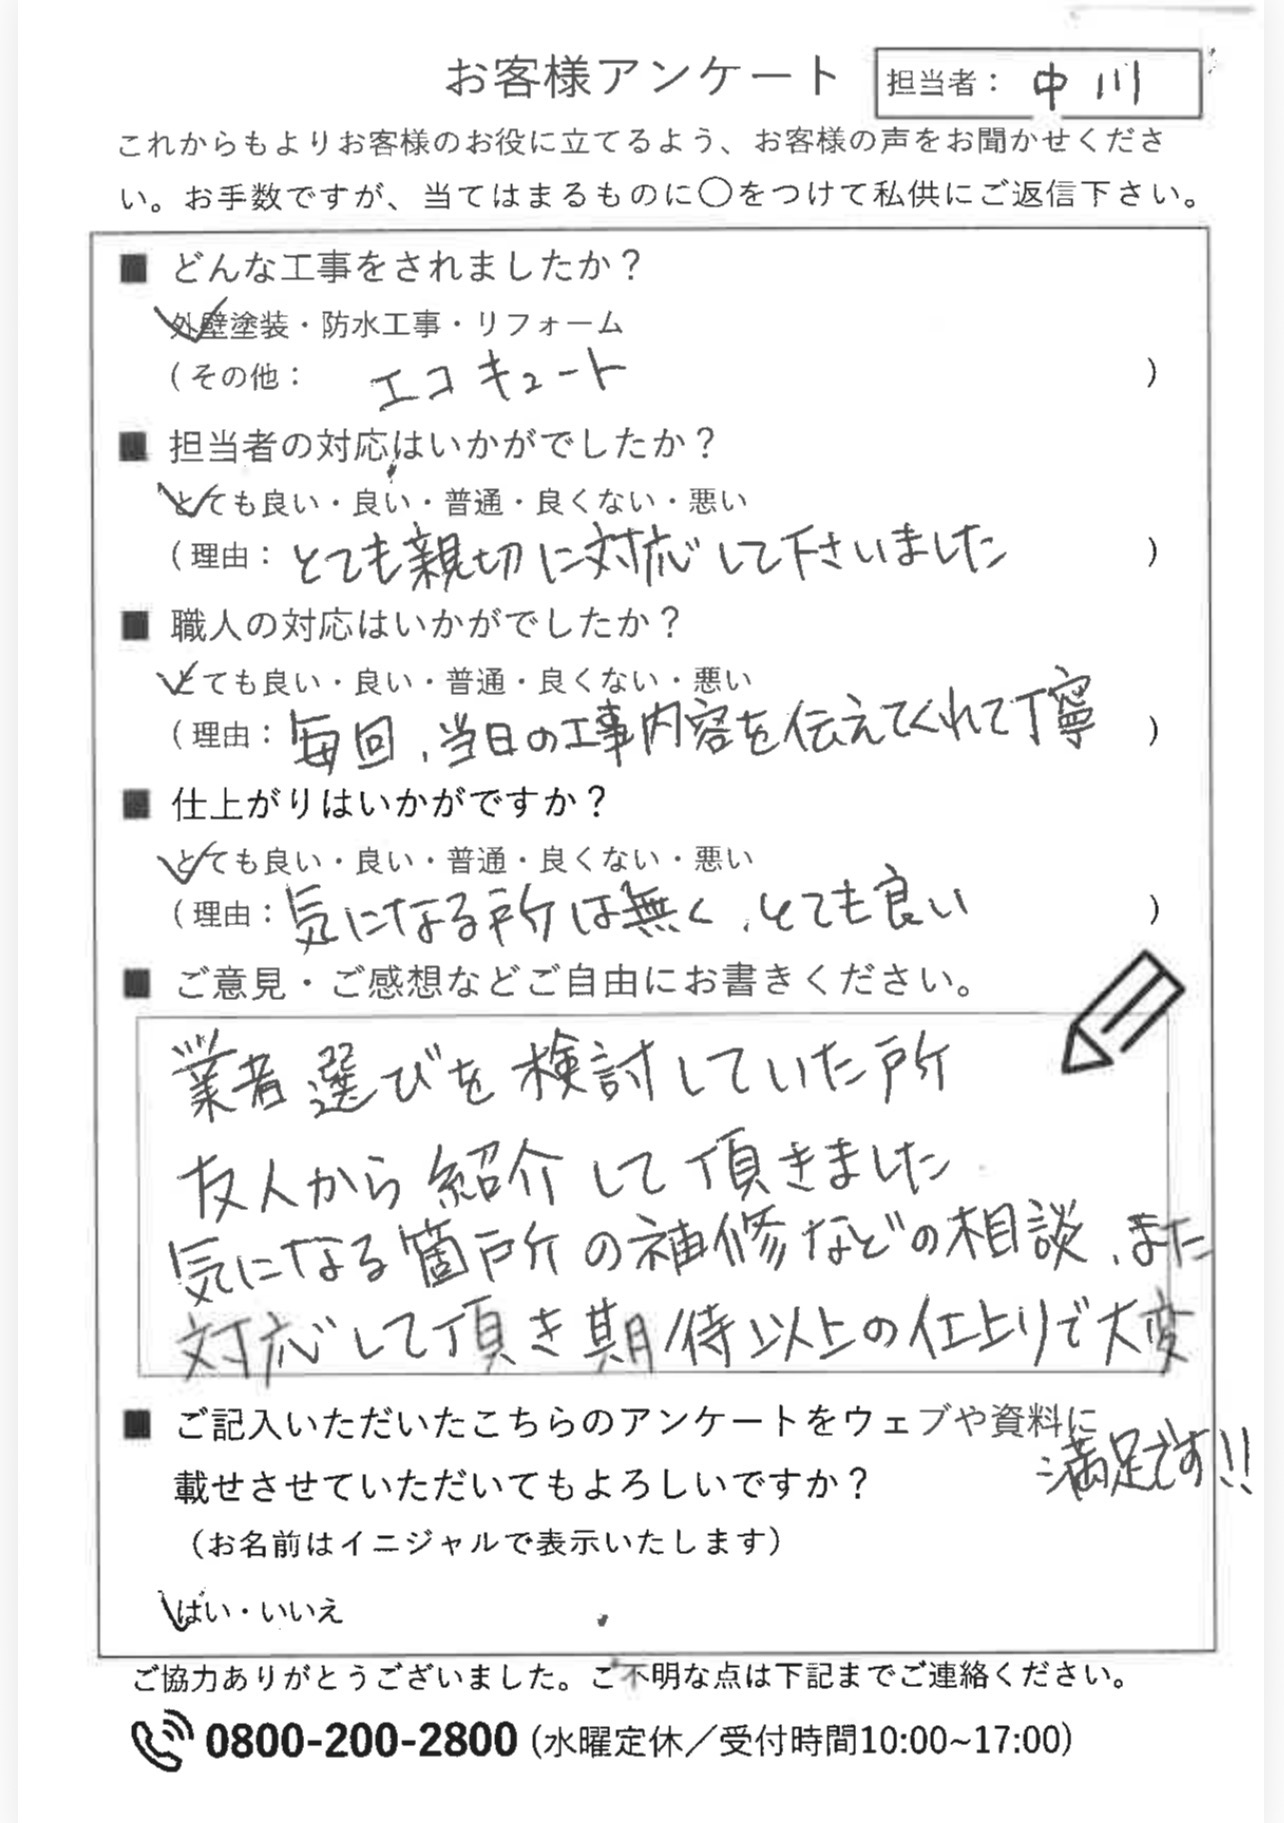 お客様アンケート
担当者： 中川
これからもよりお客様のお役に立てるよう、お客様の声をお聞かせくださ
い。お手数ですが、当てはまるものに〇をつけて私供にご返信下さい。
■ どんな工事をされましたか？
外壁塗装・防水工事・リフォーム
（その他： エコキュート ）
■ 担当者の対応はいかがでしたか？
とても良い・良い・普通・良くない・悪い
（理由：とても親切に対応して下さいました ）
■ 職人の対応はいかがでしたか？
とても良い・良い・普通・良くない・悪い
（理由：毎回、当日の工事内容を伝えてくれて丁寧 ）
■ 仕上がりはいかがですか？
とても良い・良い・普通・良くない・悪い
（理由：気になる所は無く、とても良い ）
■ ご意見・ご感想などご自由にお書きください。
業者選びを検討していた所
友人から紹介して頂きました
気になる箇所の補修などの相談、また
対応して頂き期待以上の仕上りで大変
満足です!!
■ ご記入いただいたこちらのアンケートをウェブや資料に
載せさせていただいてもよろしいですか？
（お名前はイニジャルで表示いたします）
はい・いいえ
ご協力ありがとうございました。ご不明な点は下記までご連絡ください。
0800-200-2800 (水曜定休／受付時間10:00~17:00)